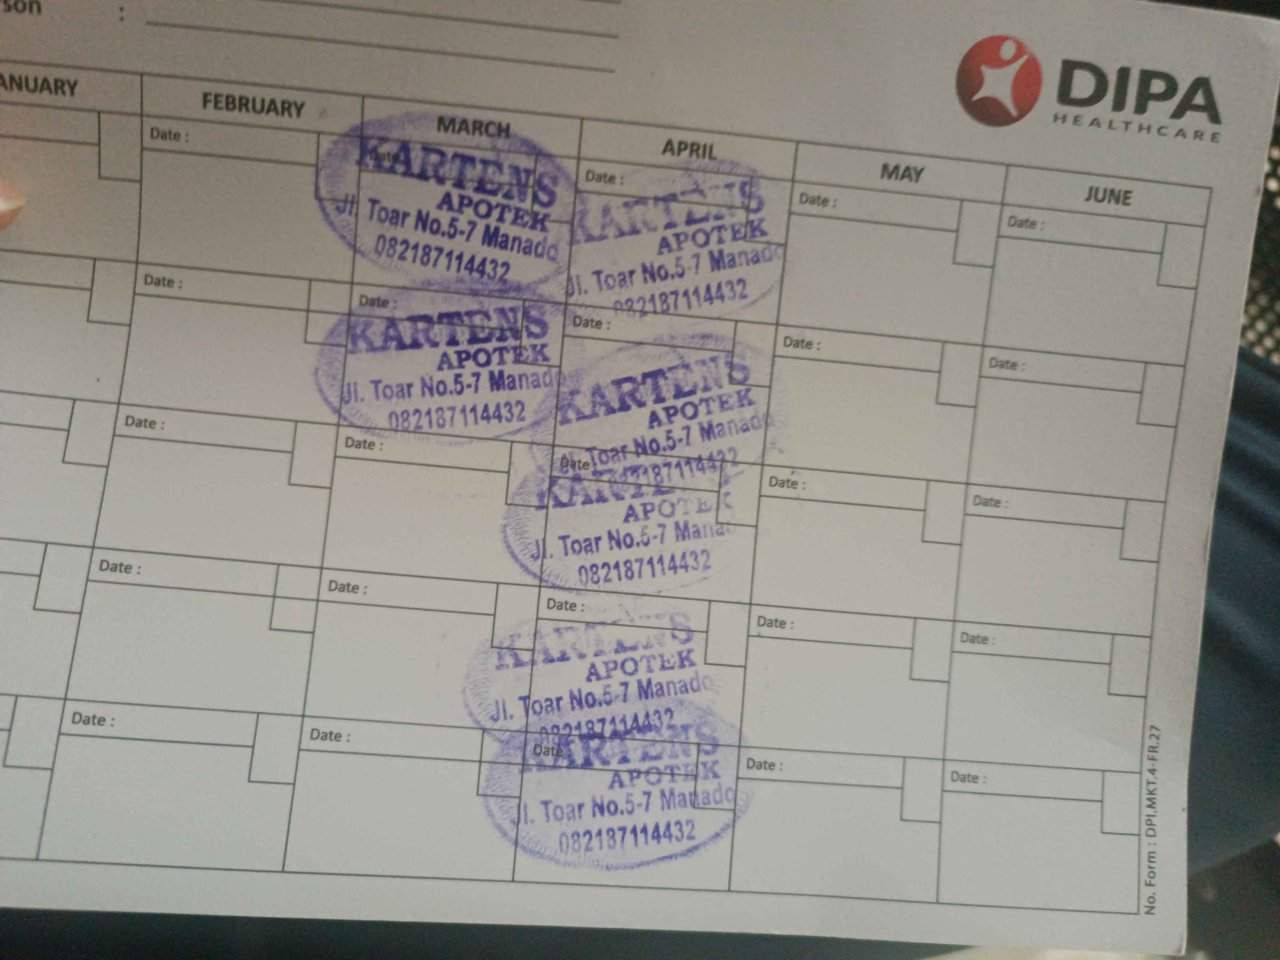 son :
DIPA
HEALTHCARE
ANUARY FEBRUARY MARCH APRIL MAY JUNE
Date : Date Date : Date : Date :
KARTENS
APOTEK
Jl. Toar No.5-7 Manado
082187114432
KARTENS
APOTEK
Jl. Toar No.5-7 Manado
082187114432
Date : Date : Date : Date : Date :
KARTENS
APOTEK
Jl. Toar No.5-7 Manado
082187114432
KARTENS
APOTEK
Jl. Toar No.5-7 Manado
082187114432
Date : Date : Date Date : Date :
KARTENS
APOTEK
Jl. Toar No.5-7 Manado
082187114432
Date : Date : Date : Date : Date :
KARTENS
APOTEK
Jl. Toar No.5-7 Manado
082187114432
Date : Date : Date Date : Date :
KARTENS
APOTEK
Jl. Toar No.5-7 Manado
082187114432
No. Form : DPI.MKT.4-FR.27